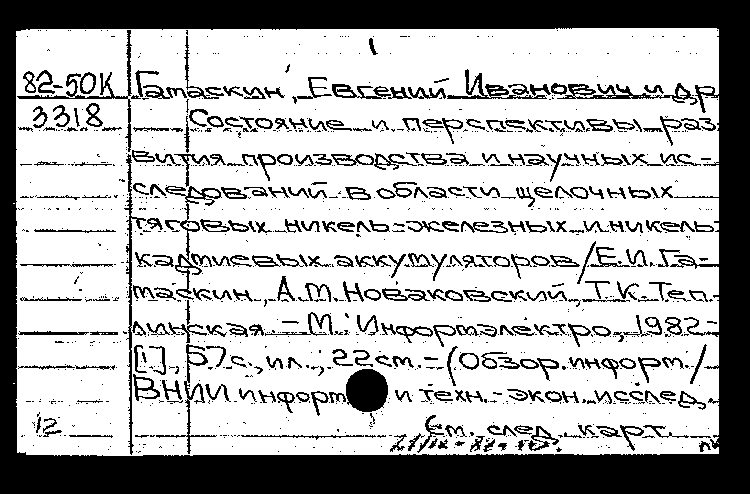 82-50К Гатаскин, Евгений Иванович и др
3318 Состояние и перспективы раз
вития производства и научных ис-
следований в области щелочных
тяговых никель-железных и никель-
кадмиевых аккумуляторов/Е.И.Га-
таскин, А.М.Новаковский, Т.К.Теп-
линская. - М.: Информэлектро, 1982-
[1], 57с., ил., 22см. - (Обзор.информ./
ВНИИ информ и техн.-экон.исслед.
12 См. след. карт.